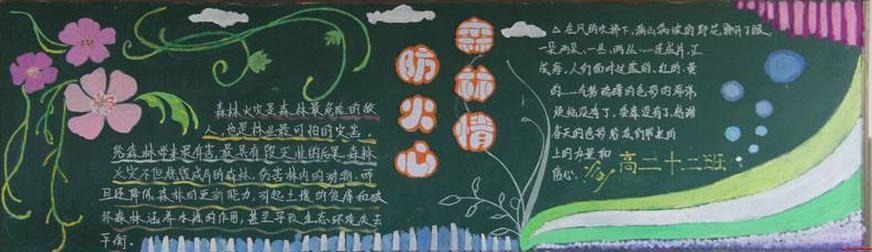 森林火灾是森林最危险的敌
人,也是林业最可怕的灾害,
给森林带来最有害,最具有毁灭性的后果。森林
火灾不但烧毁成片的森林,伤害林内的动物,而
且还降低森林的更新能力,引起土壤的贫瘠和破
坏森林涵养水源的作用,甚至导致生态环境失去
平衡。
森林情
防火心
△在风的吹拂下,满山满坡的野花睁开了眼,
一朵两朵、一丛、两丛……连成片,汇
成海,人们面对这蓝的、红的、黄
的……色彩
烦恼没有了,感谢
春天的色彩给我们带来向
上的力量和
信心。
高二十二班